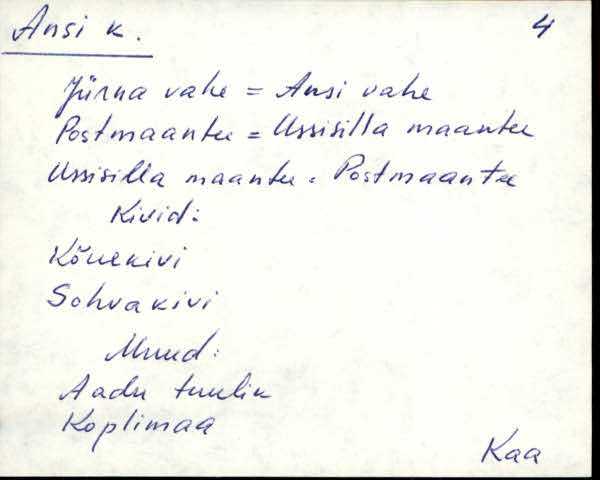 Ansi k. 4
Jürna vahe = Ansi vahe
Postmaantee = Ussisilla maantee
Ussisilla maantee = Postmaantee
Kivid:
Kõnekivi
Sohvakivi
Muud:
Aadu tuulik
Koplimaa
Kaa